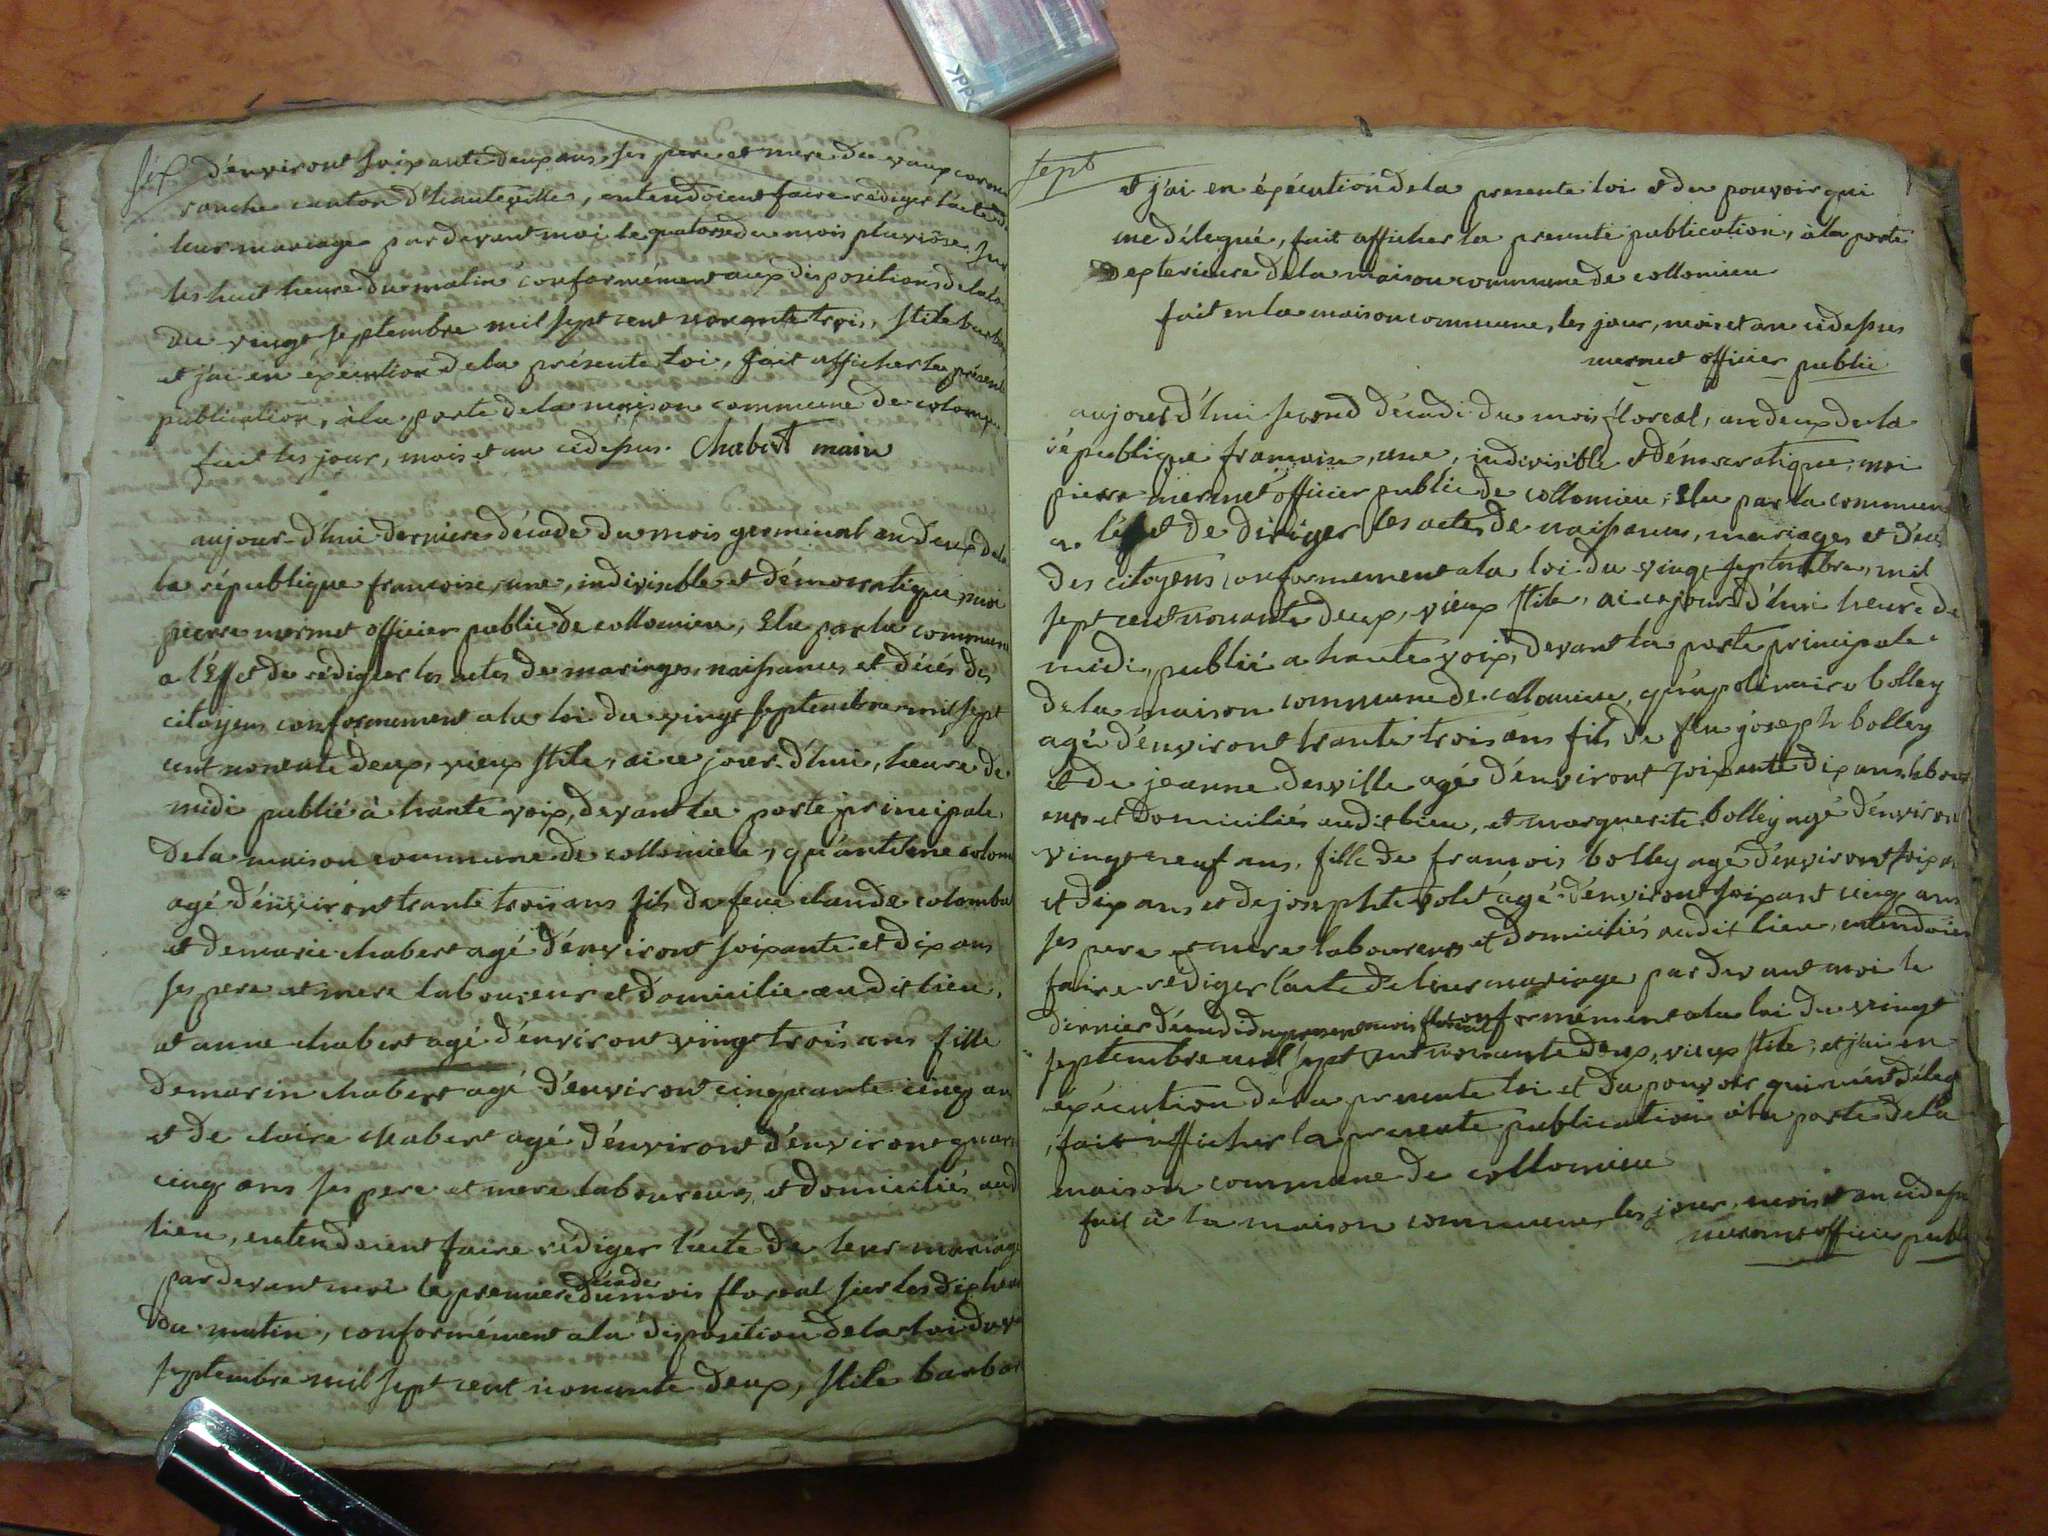 six
d'environt soixante deux ans ses pere et mere de vaux coron
ranche canton d'hauteville, entendoient faire rediger l'acte de
leur mariage pardevant moi le quatorze du mois pluviôse sur
les huit heure du matin conformément aux dispositions de la loi
du vingt septembre mil sept cent nonante trois, stile barbar
et j'ai en exécution de la présente loi, fait afficher la présente
publication, à la porte de la maison commune de colomieu
fait les jour, mois et an cidessus. Chabert maire
aujour-d'hui derniere décade du mois germinal an deux de la
la république francoise, une, indivisible et démocratique, moi
pierre mermet officier public de collomieu, Elu par la commune
a l'Effet de rédiger les actes de mariages, naissances et décés des
citoyens conformement a la loi du vingt septembre mil sept
cent nonente deux, vieux stile, ai ce jour-d'hui, heure de
midi publié à haute voix, devant la porte principale
de la maison commune de collomieu, qu'antelme colom
agé d'énvironttrante trois ans fils de feu claude colomba
et de marie chabert agé d'énviront soixante et dix ans
ses pere et mere laboureur et domicilié audit lieu,
et anne chabert agé d'énviront vingt trois ans fille
de marin chabert agé d'énviront cinquante cinq an
et de claire chabert agé d'énviront d'énviront quar
cinq ans ses pere et mere laboureurs, et domiciliés aud
lieu, entendoient faire rédiger l'acte de leur mariage
pardevant moi le premier décade du mois floreal sur les dix heure
du matin, conformément a la disposition de la loi du vin
septembre mil sept cent nonante deux, stile barbar
sept
et j'ai en éxécution de la presente loi et du pouvoir qui
me délegué, fait afficher la presente publication, à la porte
exterieure de la maison commune de collomieu
fait en la maison commune, les jour, mois et an cidessus
mermet officier public
aujourd'hui second décadi du mois floreal, an deux de la
république francoise, une, indivisible et démocratique, moi
pierre mermet officier public de collomieu, Elu par la commune
a l'é et de diriger les actes de naissances, mariages et décés
des citoyens conformement a la loi du vingt septembre, mil
sept cent nonante deux, vieux stile, ai ce jourd'hui heure de
midi, publié a haute voix, devant la porte principale
de la maison commune de collomieu, qu'apolinaire bolley
agé d'énviront trante trois ans fils de feu joseph bolley
et de jeanne deville agé d'énviront soixante dix ans, labour
eurs et domiciliés audit lieu, et marguerite bolley agé d'énviron
vingt neuf ans, fille de francois bolley agé d'énviront soixan
et dix ans et de josephte volet agé d'énviront soixant cinq ans
ses pere et mere laboureurs et domiciliés audit lieu, entendoien
faire rédiger l'acte de leur mariage pardevant moi le
dernier décadi du present mois floreal conformément a la loi du vingt
septembre mil sept cent nonante deux, vieux stile, et j'ai en
éxécution de la presente loi et du pouvoir qui m'ént délég
fait afficher la presente publication à la porte de la
maison commune de collomieu
fait à la maison commune, les jour, mois et an cidessu
mermet officier publi